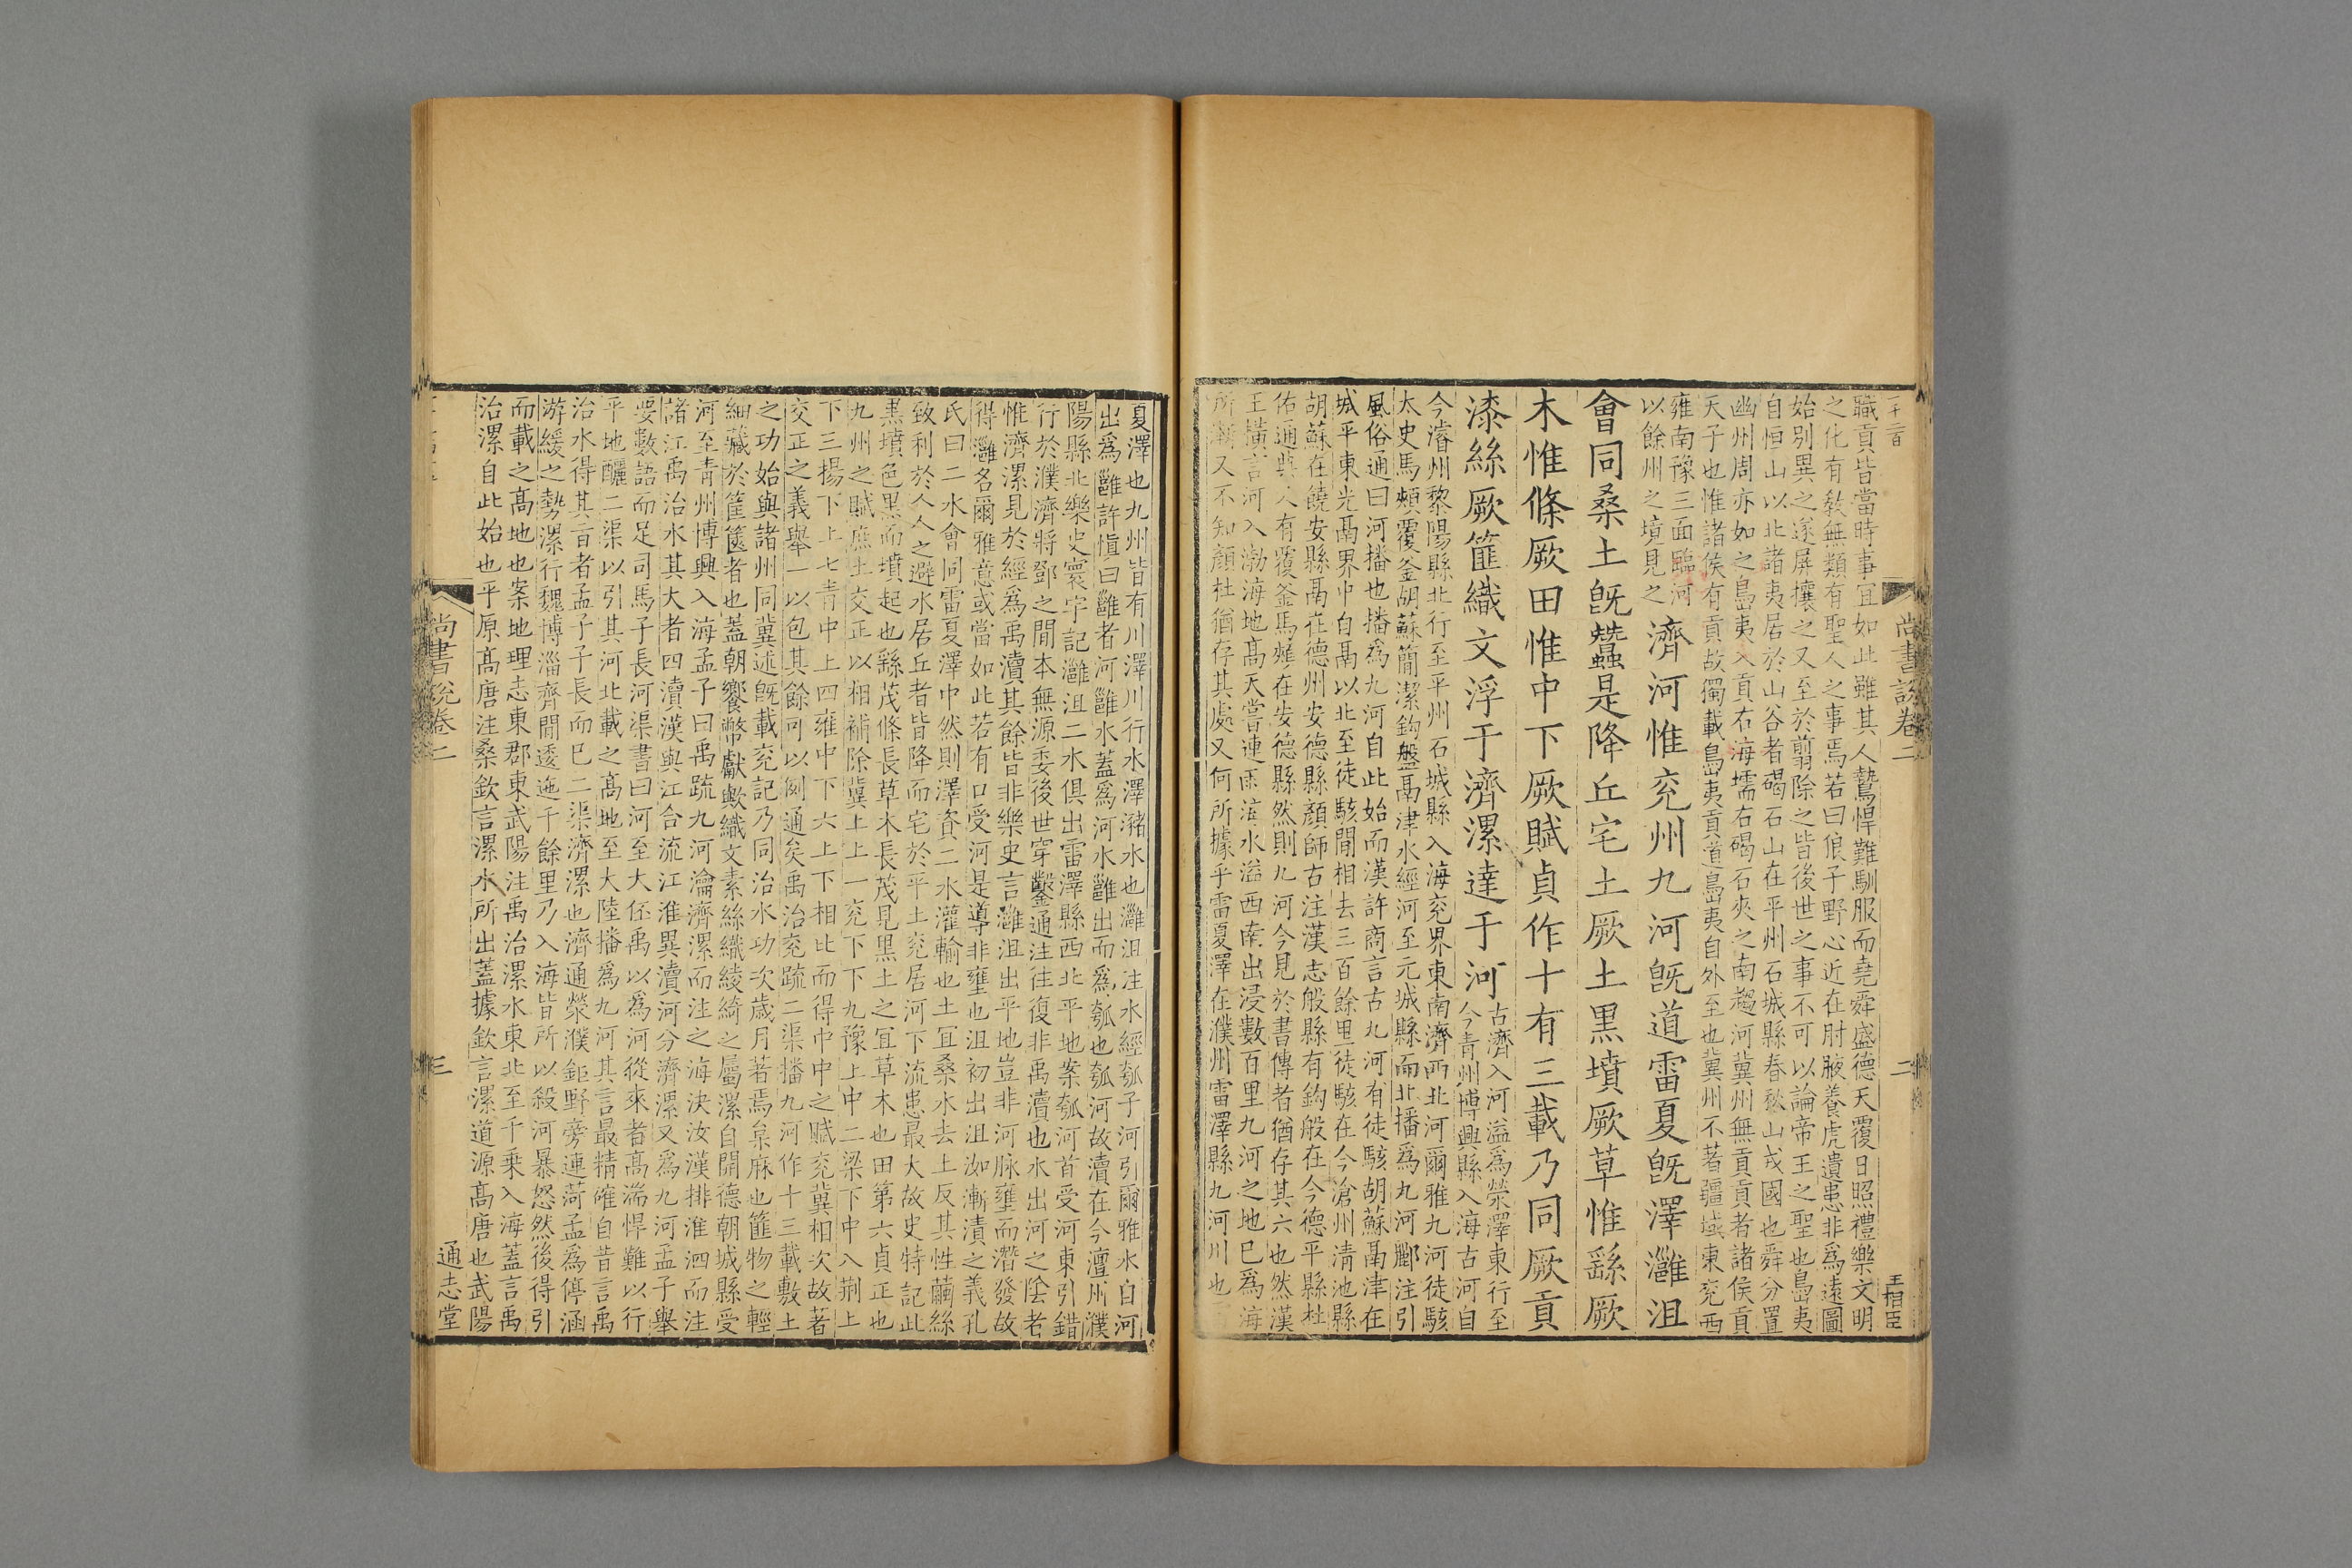 職貢皆當時事宜如此雖其人鷙悍難馴服而堯舜盛德天覆日照禮樂文明
之化有敎無類有聖人之事焉若曰狼子野心近在肘腋養虎遺患非爲遠圖
始別異之遂屏攘之又至於翦除之皆後世之事不可以論帝王之聖也島夷
自恒山以北諸夷居於山谷者碣石山在平州石城縣春秋山戎國也舜分置
幽州周亦如之島夷入貢右海壖右碣石夾之南趨河冀州無貢貢者諸侯貢
天子也惟諸侯有貢故獨載島夷貢道島夷自外至也冀州不著疆域東兖西
雍南豫三面臨河
以餘州之境見之
濟河惟兖州九河旣道雷夏旣澤灉沮
會同桑土旣蠶是降丘宅土厥土黒墳厥草惟繇厥
木惟條厥田惟中下厥賦貞作十有三載乃同厥貢
漆絲厥篚織文浮于濟漯達于河
古濟入河溢爲滎澤東行至
今青州博興縣入海古河自
今濬州黎陽縣北行至平州石城縣入海兖界東南濟西北河爾雅九河徒駭
太史馬頰覆釜胡蘇簡潔鉤盤鬲津水經河至元城縣而北播爲九河酈注引
風俗通曰河播也播爲九河自此始而漢許商言古九河有徒駭胡蘇鬲津在
城平東光鬲界中自鬲以北至徒駭間相去三百餘里徒駭在今滄州清池縣
胡蘇在饒安縣鬲在德州安德縣顏師古注漢志般縣有鉤般在今德平縣杜
佑通典人有覆釜馬頰在安德縣然則九河今見於書傳者猶存其六也然漢
王橫言河入渤海地髙天嘗連雨濱水溢西南出浸數百里九河之地已爲海
所漸又不知顏杜猶存其處又何所據乎雷夏澤在濮州雷澤縣九河川也
尚書說卷二
二
王相臣
夏澤也九州皆有川澤川行水澤瀦水也灉沮注水經瓠子河引爾雅水自河
出爲灉許愼曰灉者河灉水蓋爲河水灉出而爲瓠也瓠河故瀆在今澶州濮
陽縣北樂史寰宇記灉沮二水俱出雷澤縣西北平地案瓠河首受河東引錯
行於濮濟將鄧之間本無源委後世穿鑿通注往復非禹瀆也水出河之陰者
惟濟漯見於經爲禹瀆其餘皆非樂史言灉沮出平地豈非河脉壅而潛發故
得灉名爾雅意或當如此若有口受河是導非壅也沮初出沮洳漸漬之義孔
氏曰二水會同雷夏澤中然則澤資二水灌輸也土宜桑水去土反其性繭絲
致利於人人之避水居丘者皆降而宅於平土兖居河下流患最大故史特記此
黒墳色黒而墳起也繇茂條長草木長茂見黒土之宜草木也田第六貞正也
九州之賦庶土交正以相補除冀上上一兖下下九豫上中二梁下中八荆上
下三揚下上七青中上四雍中下六上下相比而得中中之賦兖冀相次故著
交正之義舉一以包其餘可以例通矣禹治兖疏二渠播九河作十三載敷土
之功始與諸州同冀述旣載兖記乃同治水功次歲月著焉枲麻也篚物之輕
細藏於筐篋者也蓋朝饗幣獻歟織文素絲織綾綺之屬漯自開德朝城縣受
河至青州博興入海孟子曰禹疏九河瀹濟漯而注之海決汝漢排淮泗而注
諸江禹治水其大者四瀆漢與江合流江淮異瀆河分濟漯又爲九河孟子舉
要數語而足司馬子長河渠書曰河至大伾禹以爲河從來者髙湍悍難以行
平地釃二渠以引其河北載之髙地至大陸播爲九河其言最精確自昔言禹
治水得其言者孟子子長而已二渠濟漯也濟通滎濮鉅野旁連菏孟爲停涵
游緩之勢漯行魏博淄齊間逶迤千餘里乃入海皆所以殺河暴怒然後得引
而載之髙地也案地理志東郡東武陽注禹治漯水東北至千乗入海蓋言禹
治漯自此始也平原髙唐注桑欽言漯水所出蓋據欽言漯道源髙唐也武陽
尚書說卷二
三
通志堂